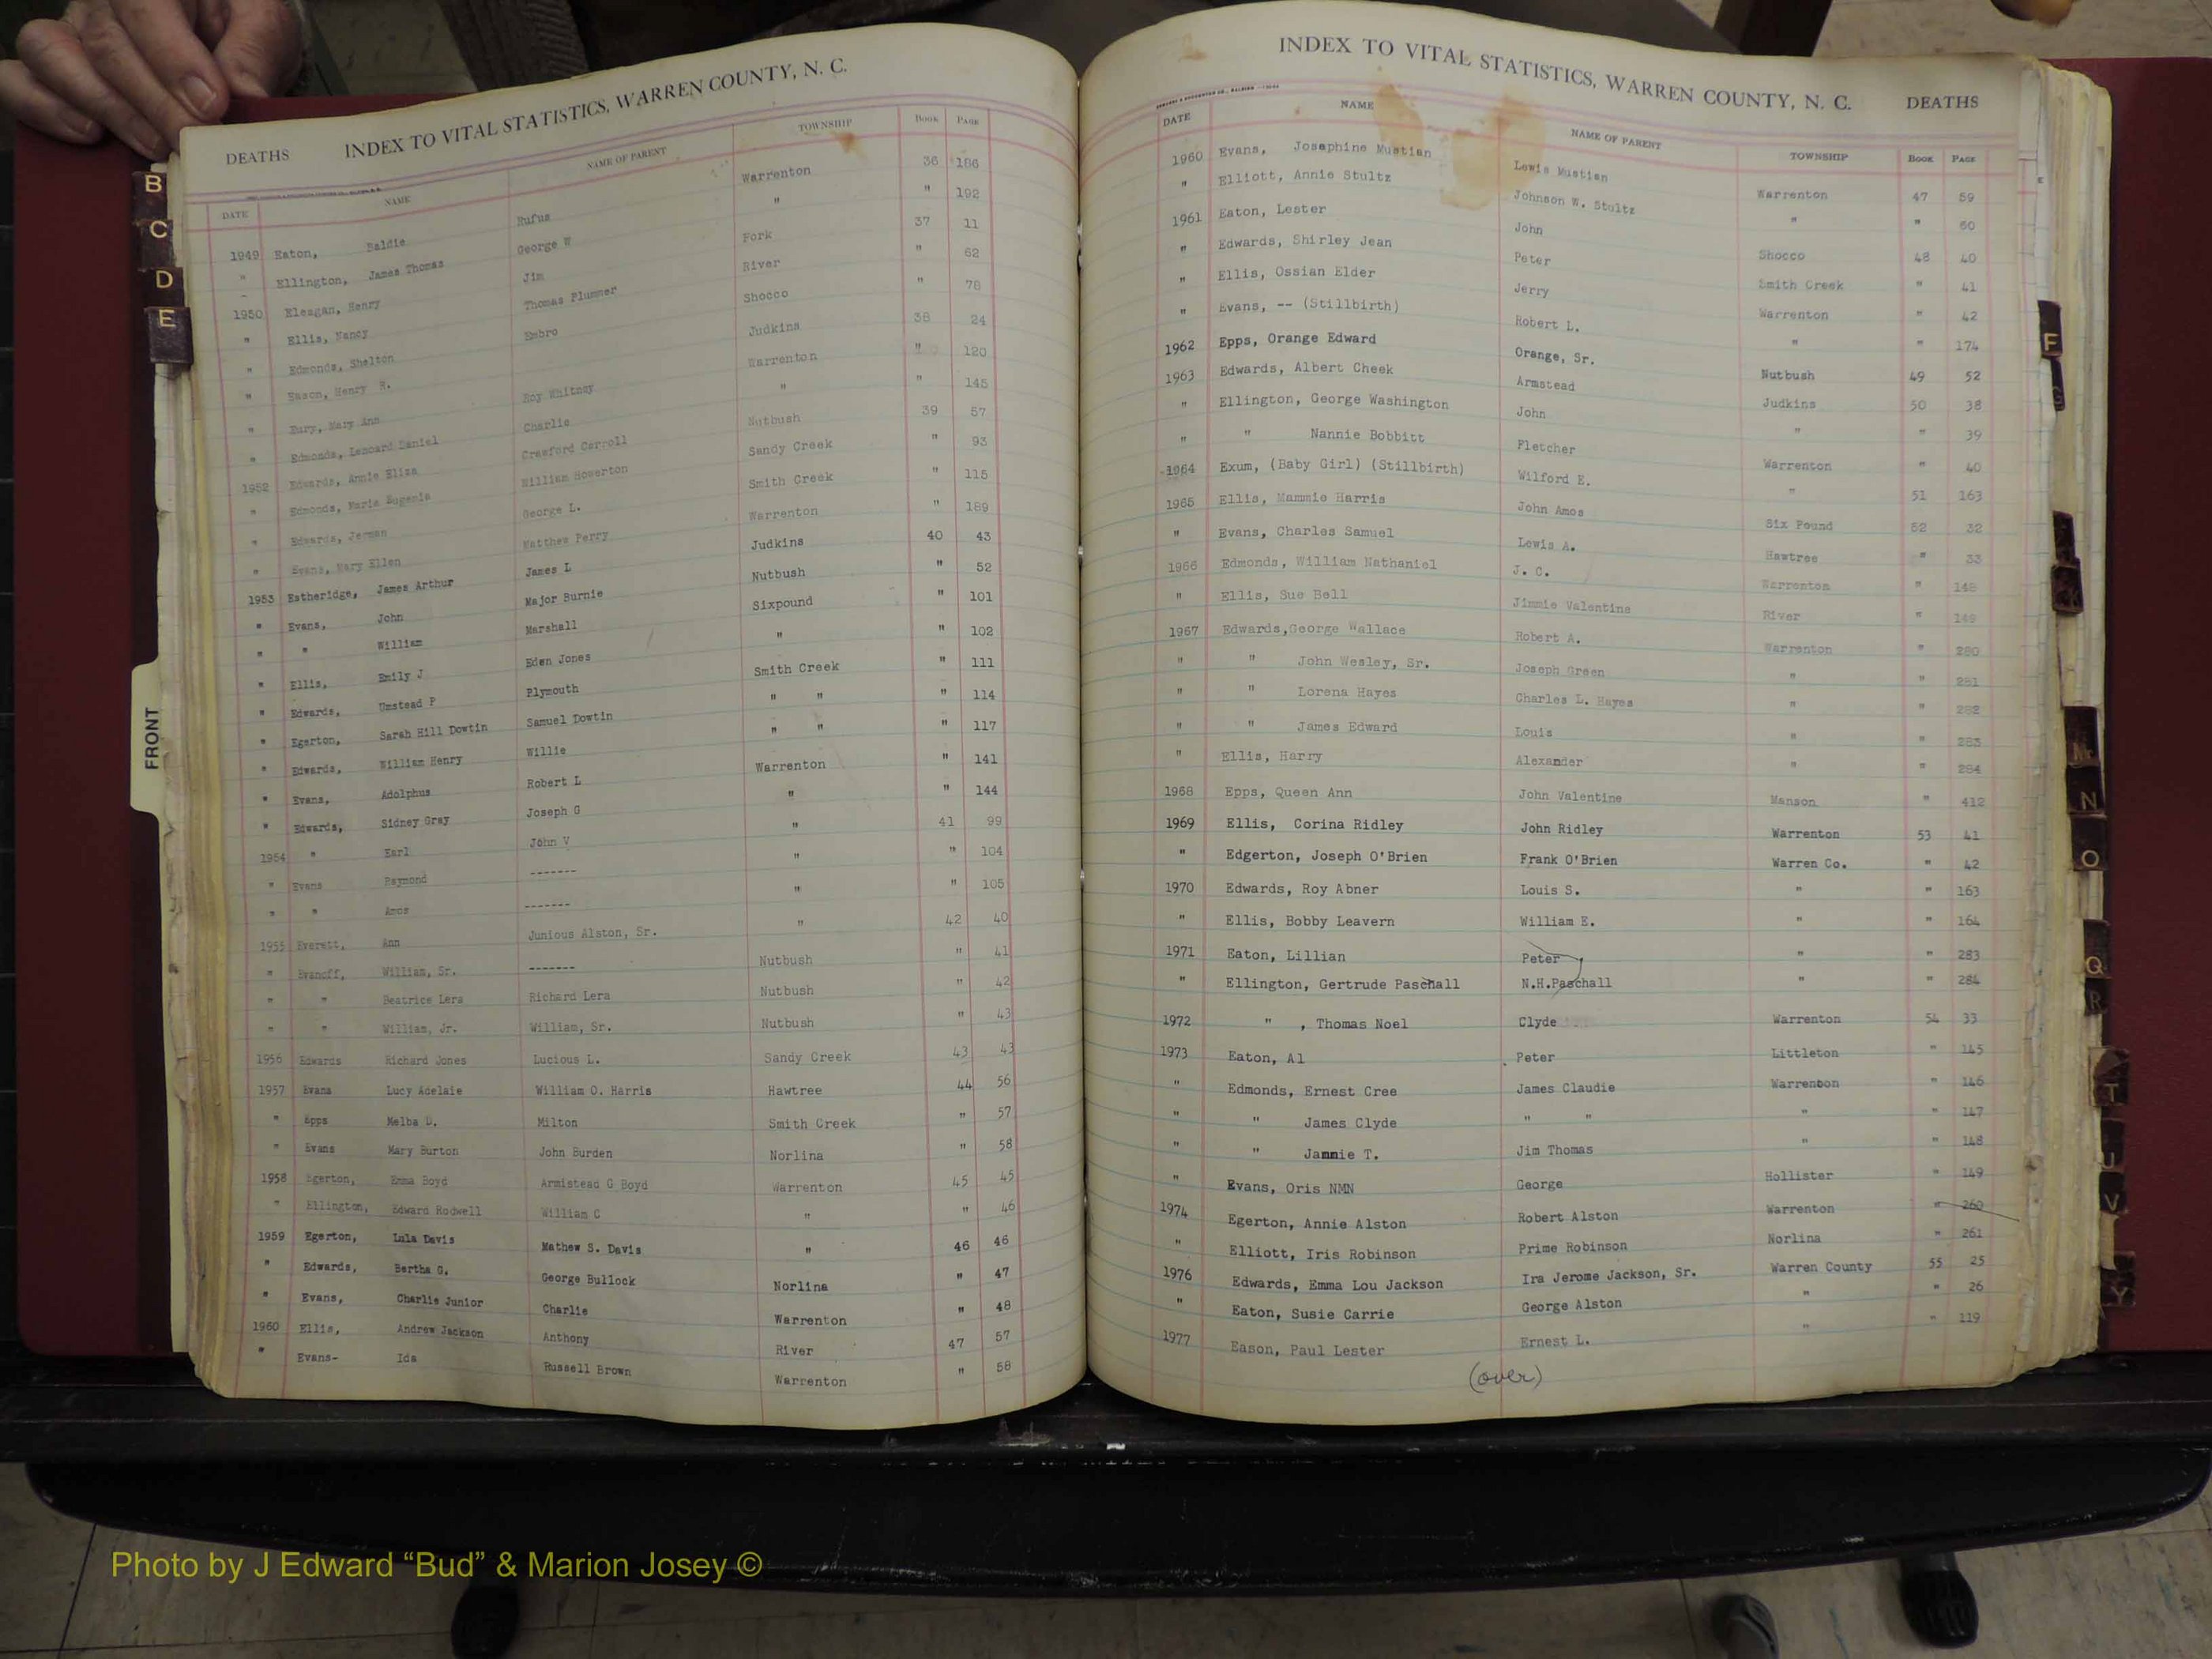 DEATHS INDEX TO VITAL STATISTICS, WARREN COUNTY, N. C.
DATE NAME NAME OF PARENT TOWNSHIP BOOK PAGE
1949 Eaton, Baldie Rufus Warrenton 36 186
" Ellington, James Thomas George W " " 192
1950 Eleazgan, Henry Jim Fork 37 11
" Ellis, Nancy Thomas Plummer River " 62
" Edmonds, Shelton Embro Shocco " 78
" Eason, Henry R. Judkins 38 24
" Eury, Mary Ann Roy Whitney Warrenton " 120
" Edmonds, Leonard Daniel Charlie " " 145
1952 Edwards, Annie Eliza Crawford Carroll Nutbush 39 57
" Edmonds, Maria Eugenia William Howerton Sandy Creek " 93
" Edwards, Jerman George L. Smith Creek " 115
" Evans, Mary Ellen Matthew Perry Warrenton " 189
1953 Estheridge, James Arthur James L Judkins 40 43
" Evans, John Major Burnie Nutbush " 52
" " William Marshall Sixpound " 101
" Ellis, Emily J Eden Jones " " 102
" Edwards, Umstead P Plymouth Smith Creek " 111
" Egerton, Sarah Hill Dowtin Samuel Dowtin " " " 114
" Edwards, William Henry Willie " " " 117
" Evans, Adolphus Robert L Warrenton " 141
" Edwards, Sidney Gray Joseph G " " 144
1954 " Earl John V " 41 99
" Evans Raymond ------- " " 104
" " Amos ------- " " 105
1955 Everett, Ann Junious Alston, Sr. " 42 40
" Evanoff, William, Sr. ------- Nutbush " 41
" " Beatrice Lera Richard Lera Nutbush " 42
" " William, Jr. William, Sr. Nutbush " 43
1956 Edwards Richard Jones Lucious L. Sandy Creek 43 43
1957 Evans Lucy Adelaie William O. Harris Hawtree 44 56
" Epps Melba D. Milton Smith Creek " 57
" Evans Mary Burton John Burden Norlina " 58
1958 Egerton, Emma Boyd Armistead G Boyd Warrenton 45 45
" Ellington, Edward Rodwell William C " " 46
1959 Egerton, Lula Davis Mathew S. Davis " 46 46
" Edwards, Bertha G. George Bullock Norlina " 47
" Evans, Charlie Junior Charlie Warrenton " 48
1960 Ellis, Andrew Jackson Anthony River 47 57
" Evans- Ida Russell Brown Warrenton " 58
INDEX TO VITAL STATISTICS, WARREN COUNTY, N. C. DEATHS
DATE NAME NAME OF PARENT TOWNSHIP BOOK PAGE
1960 Evans, Josephine Mustian Lewis Mustian Warrenton 47 59
" Elliott, Annie Stultz Johnson W. Stultz " " 60
1961 Eaton, Lester John Shocco 48 40
" Edwards, Shirley Jean Peter Smith Creek " 41
" Ellis, Ossian Elder Jerry Warrenton " 42
" Evans, -- (Stillbirth) Robert L. " " 174
1962 Epps, Orange Edward Orange, Sr. Nutbush 49 52
1963 Edwards, Albert Cheek Armstead Judkins 50 38
" Ellington, George Washington John " " 39
" " Nannie Bobbitt Fletcher Warrenton " 40
1964 Exum, (Baby Girl) (Stillbirth) Wilford E. " 51 163
1965 Ellis, Mammie Harris John Amos Six Pound 52 32
" Evans, Charles Samuel Lewis A. Hawtree " 33
1966 Edmonds, William Nathaniel J. C. Warrenton " 148
" Ellis, Sue Bell Jimmie Valentine River " 149
1967 Edwards,George Wallace Robert A. Warrenton " 280
" " John Wesley, Sr. Joseph Green " " 281
" " Lorena Hayes Charles L. Hayes " " 282
" " James Edward Louis " " 283
" Ellis, Harry Alexander " " 284
1968 Epps, Queen Ann John Valentine Manson " 412
1969 Ellis, Corina Ridley John Ridley Warrenton 53 41
" Edgerton, Joseph O'Brien Frank O'Brien Warren Co. " 42
1970 Edwards, Roy Abner Louis S. " " 163
" Ellis, Bobby Leavern William E. " " 164
1971 Eaton, Lillian Peter " " 283
" Ellington, Gertrude Paschall N.H.Paschall " " 284
1972 " , Thomas Noel Clyde Warrenton 54 33
1973 Eaton, Al Peter Littleton " 145
" Edmonds, Ernest Cree James Claudie Warrenton " 146
" " James Clyde " " " " 147
" " Jammie T. Jim Thomas " " 148
" Evans, Oris NMN George Hollister " 149
1974 Egerton, Annie Alston Robert Alston Warrenton " 260
" Elliott, Iris Robinson Prime Robinson Norlina " 261
1976 Edwards, Emma Lou Jackson Ira Jerome Jackson, Sr. Warren County 55 25
" Eaton, Susie Carrie George Alston " " 26
1977 Eason, Paul Lester Ernest L. " " 119
(over)
B
C
D
E
FRONT
F
G
N
O
Q
R
T
U
V
Y
Photo by J Edward “Bud” & Marion Josey ©